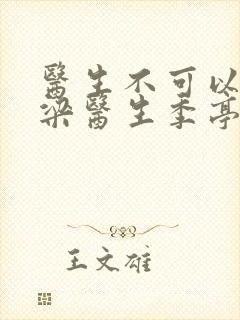 醫生不可以
梁醫生季亭
王文雄